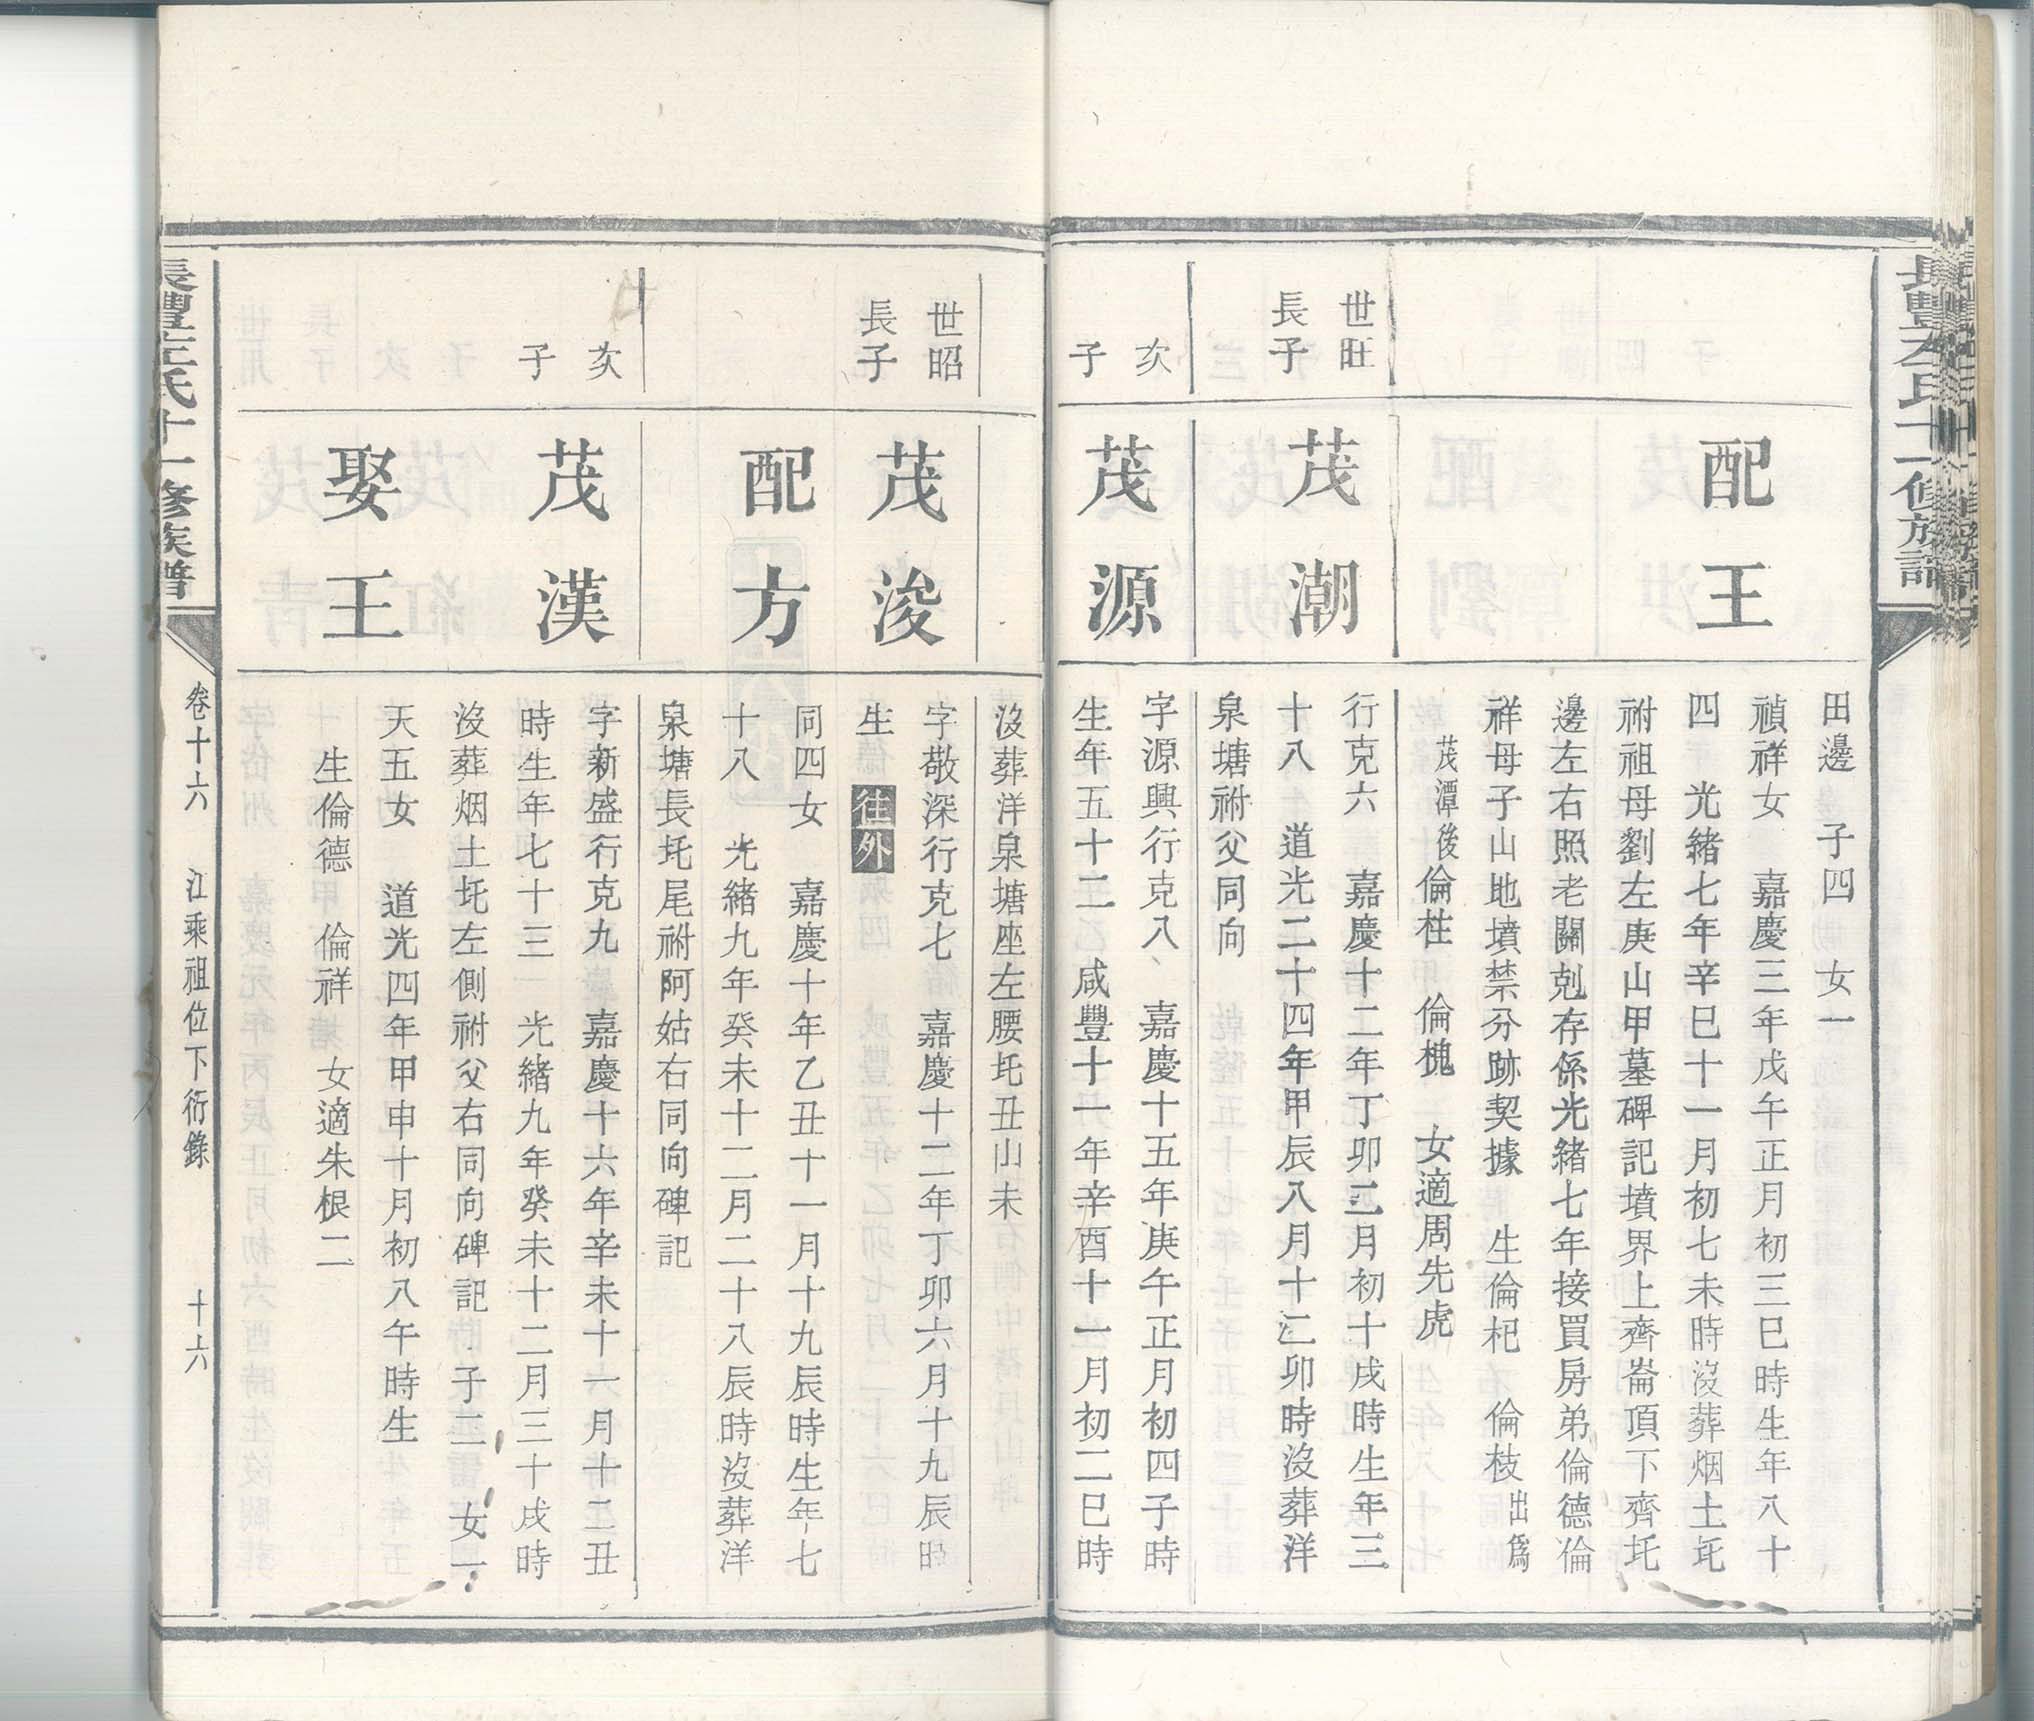 長豐左氏十一修族譜
配王
田邊　子四　女一
禎祥女　嘉慶三年戊午正月初三巳時生年八十
四　光緒七年辛巳十一月初七未時沒葬烟土坉
祔祖母劉左庚山甲墓碑記墳界上齊崙頂下齊坉
邊左右照老關剋存係光緒七年接買房弟倫德倫
祥母子山地墳禁分跡契據　生倫杞　倫枝出爲
茂潭後倫柱　倫槐　女適周先虎
世旺
長子
茂潮
行克六　嘉慶十二年丁卯二月初十戌時生年三
十八　道光二十四年甲辰八月十二卯時沒葬洋
泉塘祔父同向
次
子
茂源
字源興行克八　嘉慶十五年庚午正月初四子時
生年五十二　咸豐十一年辛酉十一月初二巳時
沒葬洋泉塘座左腰坉丑山未
世昭
長子
茂浚
字敬深行克七　嘉慶十二年丁卯六月十九辰時
生　往外
配方
同四女　嘉慶十年乙丑十一月十九辰時生年七
十八　光緒九年癸未十二月二十八辰時沒葬洋
泉塘長坉尾祔阿姑右同向碑記
次
子
茂漢
字新盛行克九　嘉慶十六年辛未十一月十二丑
時生年七十三　光緒九年癸未十二月三十戌時
沒葬烟土坉左側祔父右同向碑記　子二　女一
娶王
天五女　道光四年甲申十月初八午時生
生倫德　倫祥　女適朱根二
長豐左氏十一修族譜
卷十六　江乘祖位下衍錄　十六